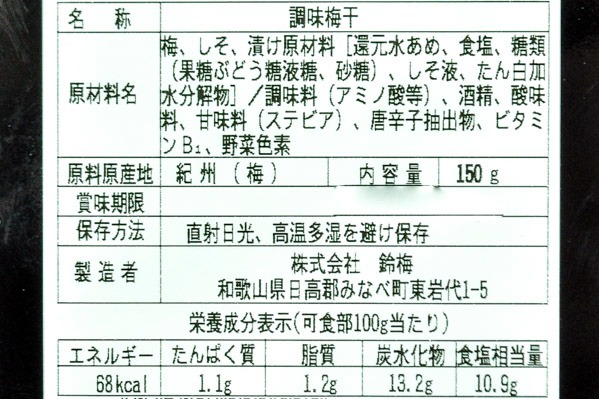 名 称 調味梅干
原材料名 梅、しそ、漬け原材料［還元水あめ、食塩、糖類
（果糖ぶどう糖液糖、砂糖）、しそ液、たん白加
水分解物］／調味料（アミノ酸等）、酒精、酸味
料、甘味料（ステビア）、唐辛子抽出物、ビタミ
ンB₁、野菜色素
原料原産地 紀州（梅） 内容量 150g
賞味期限
保存方法 直射日光、高温多湿を避け保存
製造者 株式会社 鈴梅
和歌山県日高郡みなべ町東岩代1-5
栄養成分表示(可食部100g当たり)
エネルギー たんぱく質 脂質 炭水化物 食塩相当量
68kcal 1.1g 1.2g 13.2g 10.9g